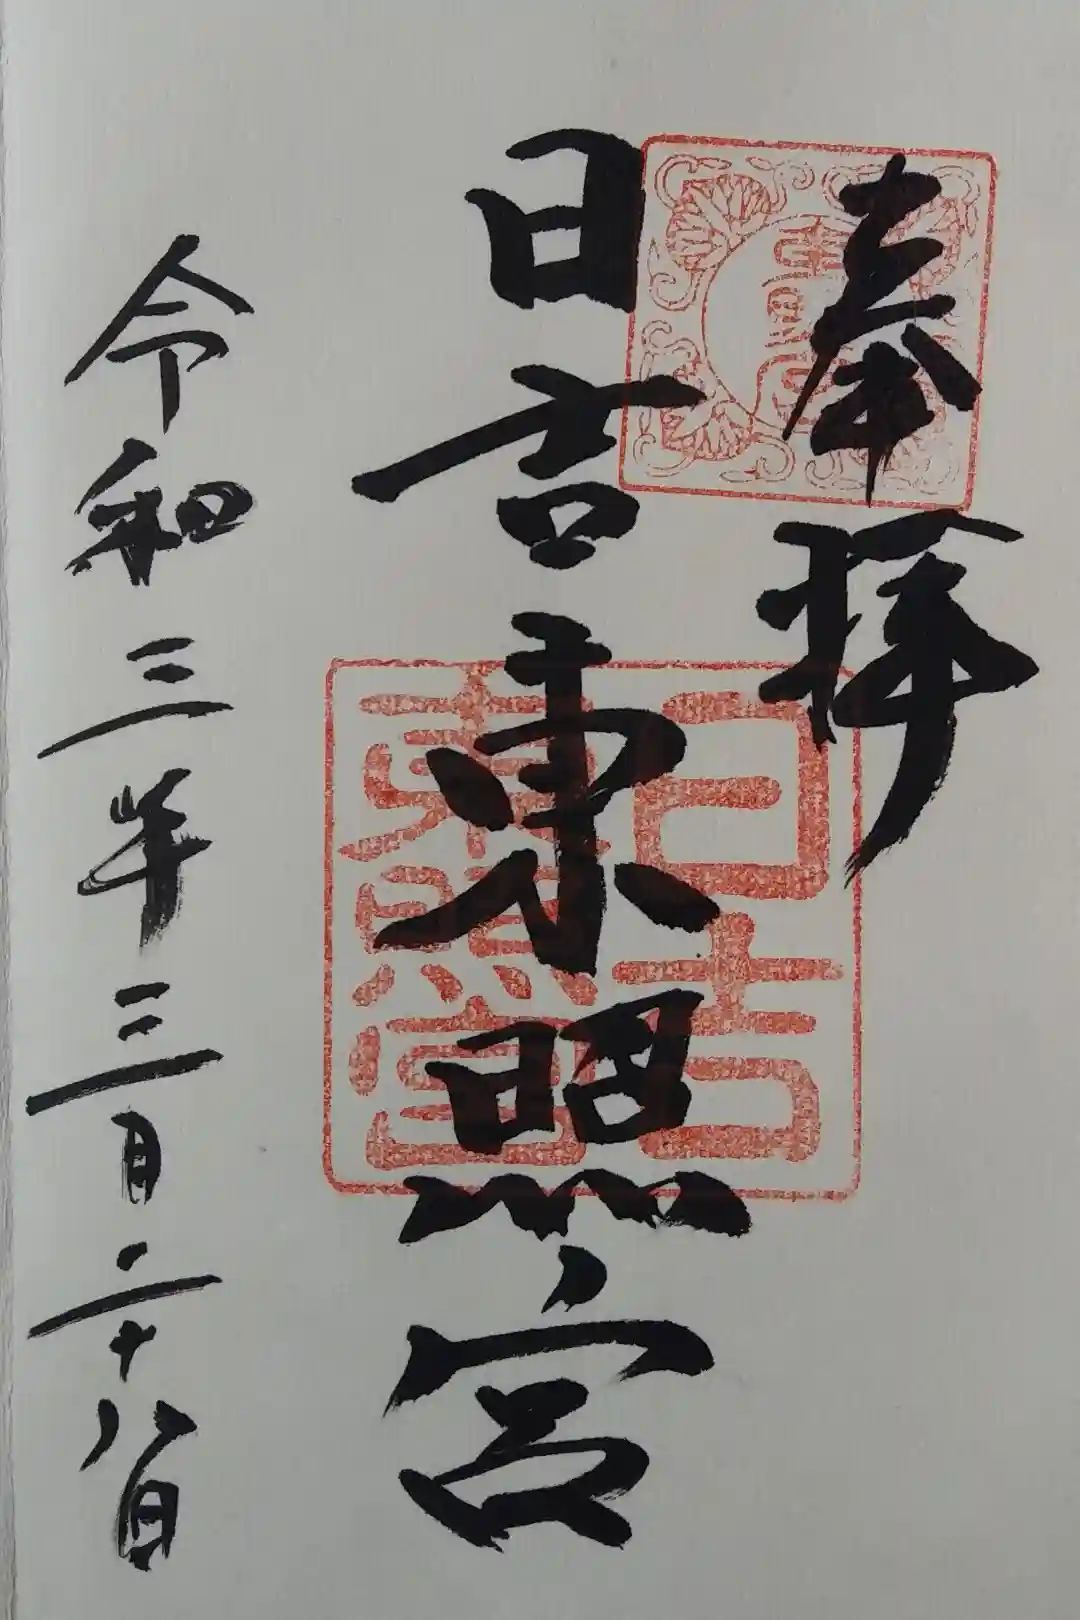 奉拝
日吉東照宮
日吉
東照宮
令和三年三月二十八日